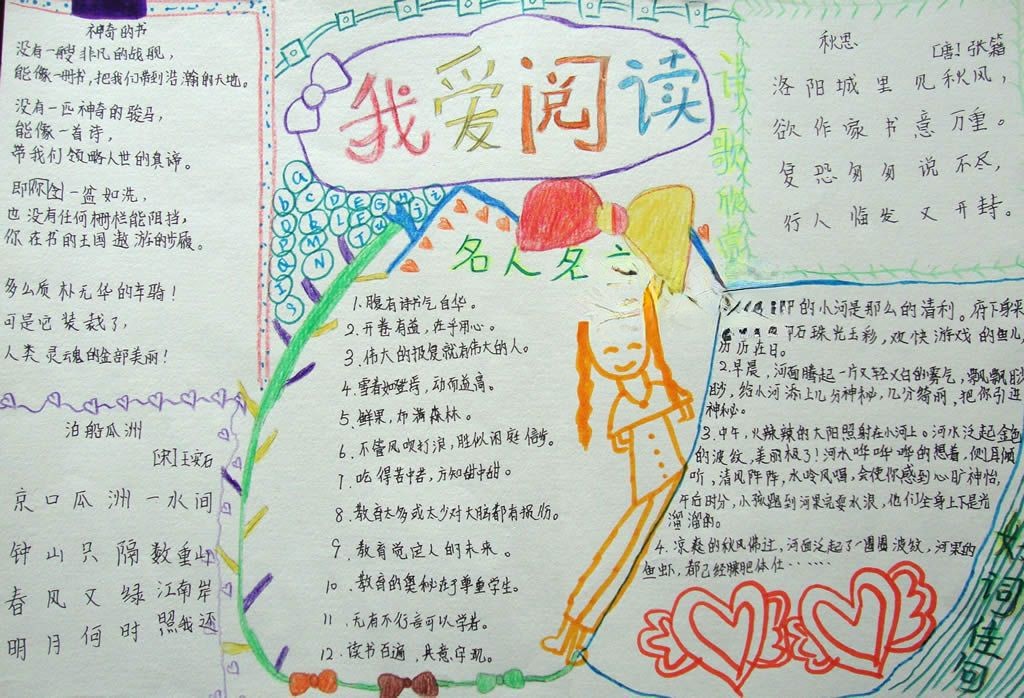 神奇的书
没有一艘非凡的战舰,
能像一册书,把我们带到浩瀚的天地。
没有一匹神奇的骏马,
能像一首诗,
带我们领略人世的真谛。
即你图一盆如洗,
也没有任何栅栏能阻挡,
你在书的王国遨游的步履。
多么质朴无华的车骑!
可是它装载了,
人类灵魂的全部美丽!
泊船瓜洲
[宋]王安石
京口瓜洲一水间
钟山只隔数重山
春风又绿江南岸
明月何时照我还
我爱阅读
名人名言
1.腹有诗书气自华。
2.开卷有益,在乎用心。
3.伟大的报复就有伟大的人。
4.登
5.鲜果,布满森林。
6.不管风吹打浪,胜似闲庭信步。
7.吃得苦中苦,方知甜中甜
8.教育太多或太少对大脑都有损伤。
9.教育觉定人的未来。
10.教育的奥秘在于尊重学生。
11.无有不行言可以学者。
12.读书百遍,其意字现。
诗歌欣赏
秋思
[唐!张籍
洛阳城里见秋风,
欲作家书意万重。
复恐匆匆说不尽,
行人临发又开封。
的小河是那么的清利。府下身来
石珠光玉彩,欢快游戏的鱼儿,
历历在日。
2.早晨,河面腾起一片又轻又白的雾气,飘飘
,给小河添上几分神秘,几分绮丽,把你引进
神秘。
3.中午,火辣辣的太阳照射在小河上。河水泛起金色
的波纹,美丽极了!河水哗哗哗的想着,侧耳倾
听,清风阵阵,水呤风唱,会使你感到心旷神怡,
午白时分,小孩跑到河果完耍水浪,他们全身上下是光
溜溜的。
4.凉爽的秋风佛过,河面泛起了一圈圈波纹,河果的
鱼虾,都己经膘肥体仕……
好词佳句